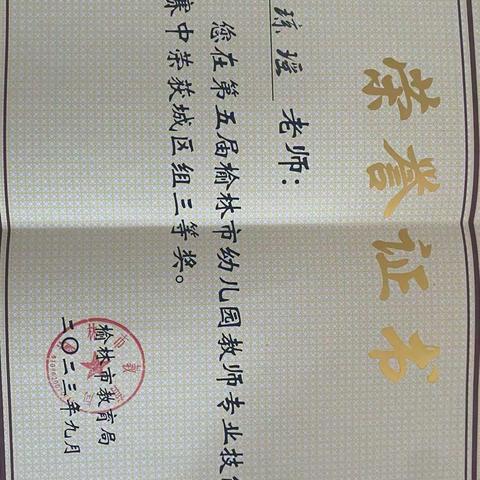 荣誉证书
琼瑶 老师:
您在第五届榆林市幼儿园教师专业技
赛中荣获城区组三等奖。
榆林市教育局
二〇二三年九月